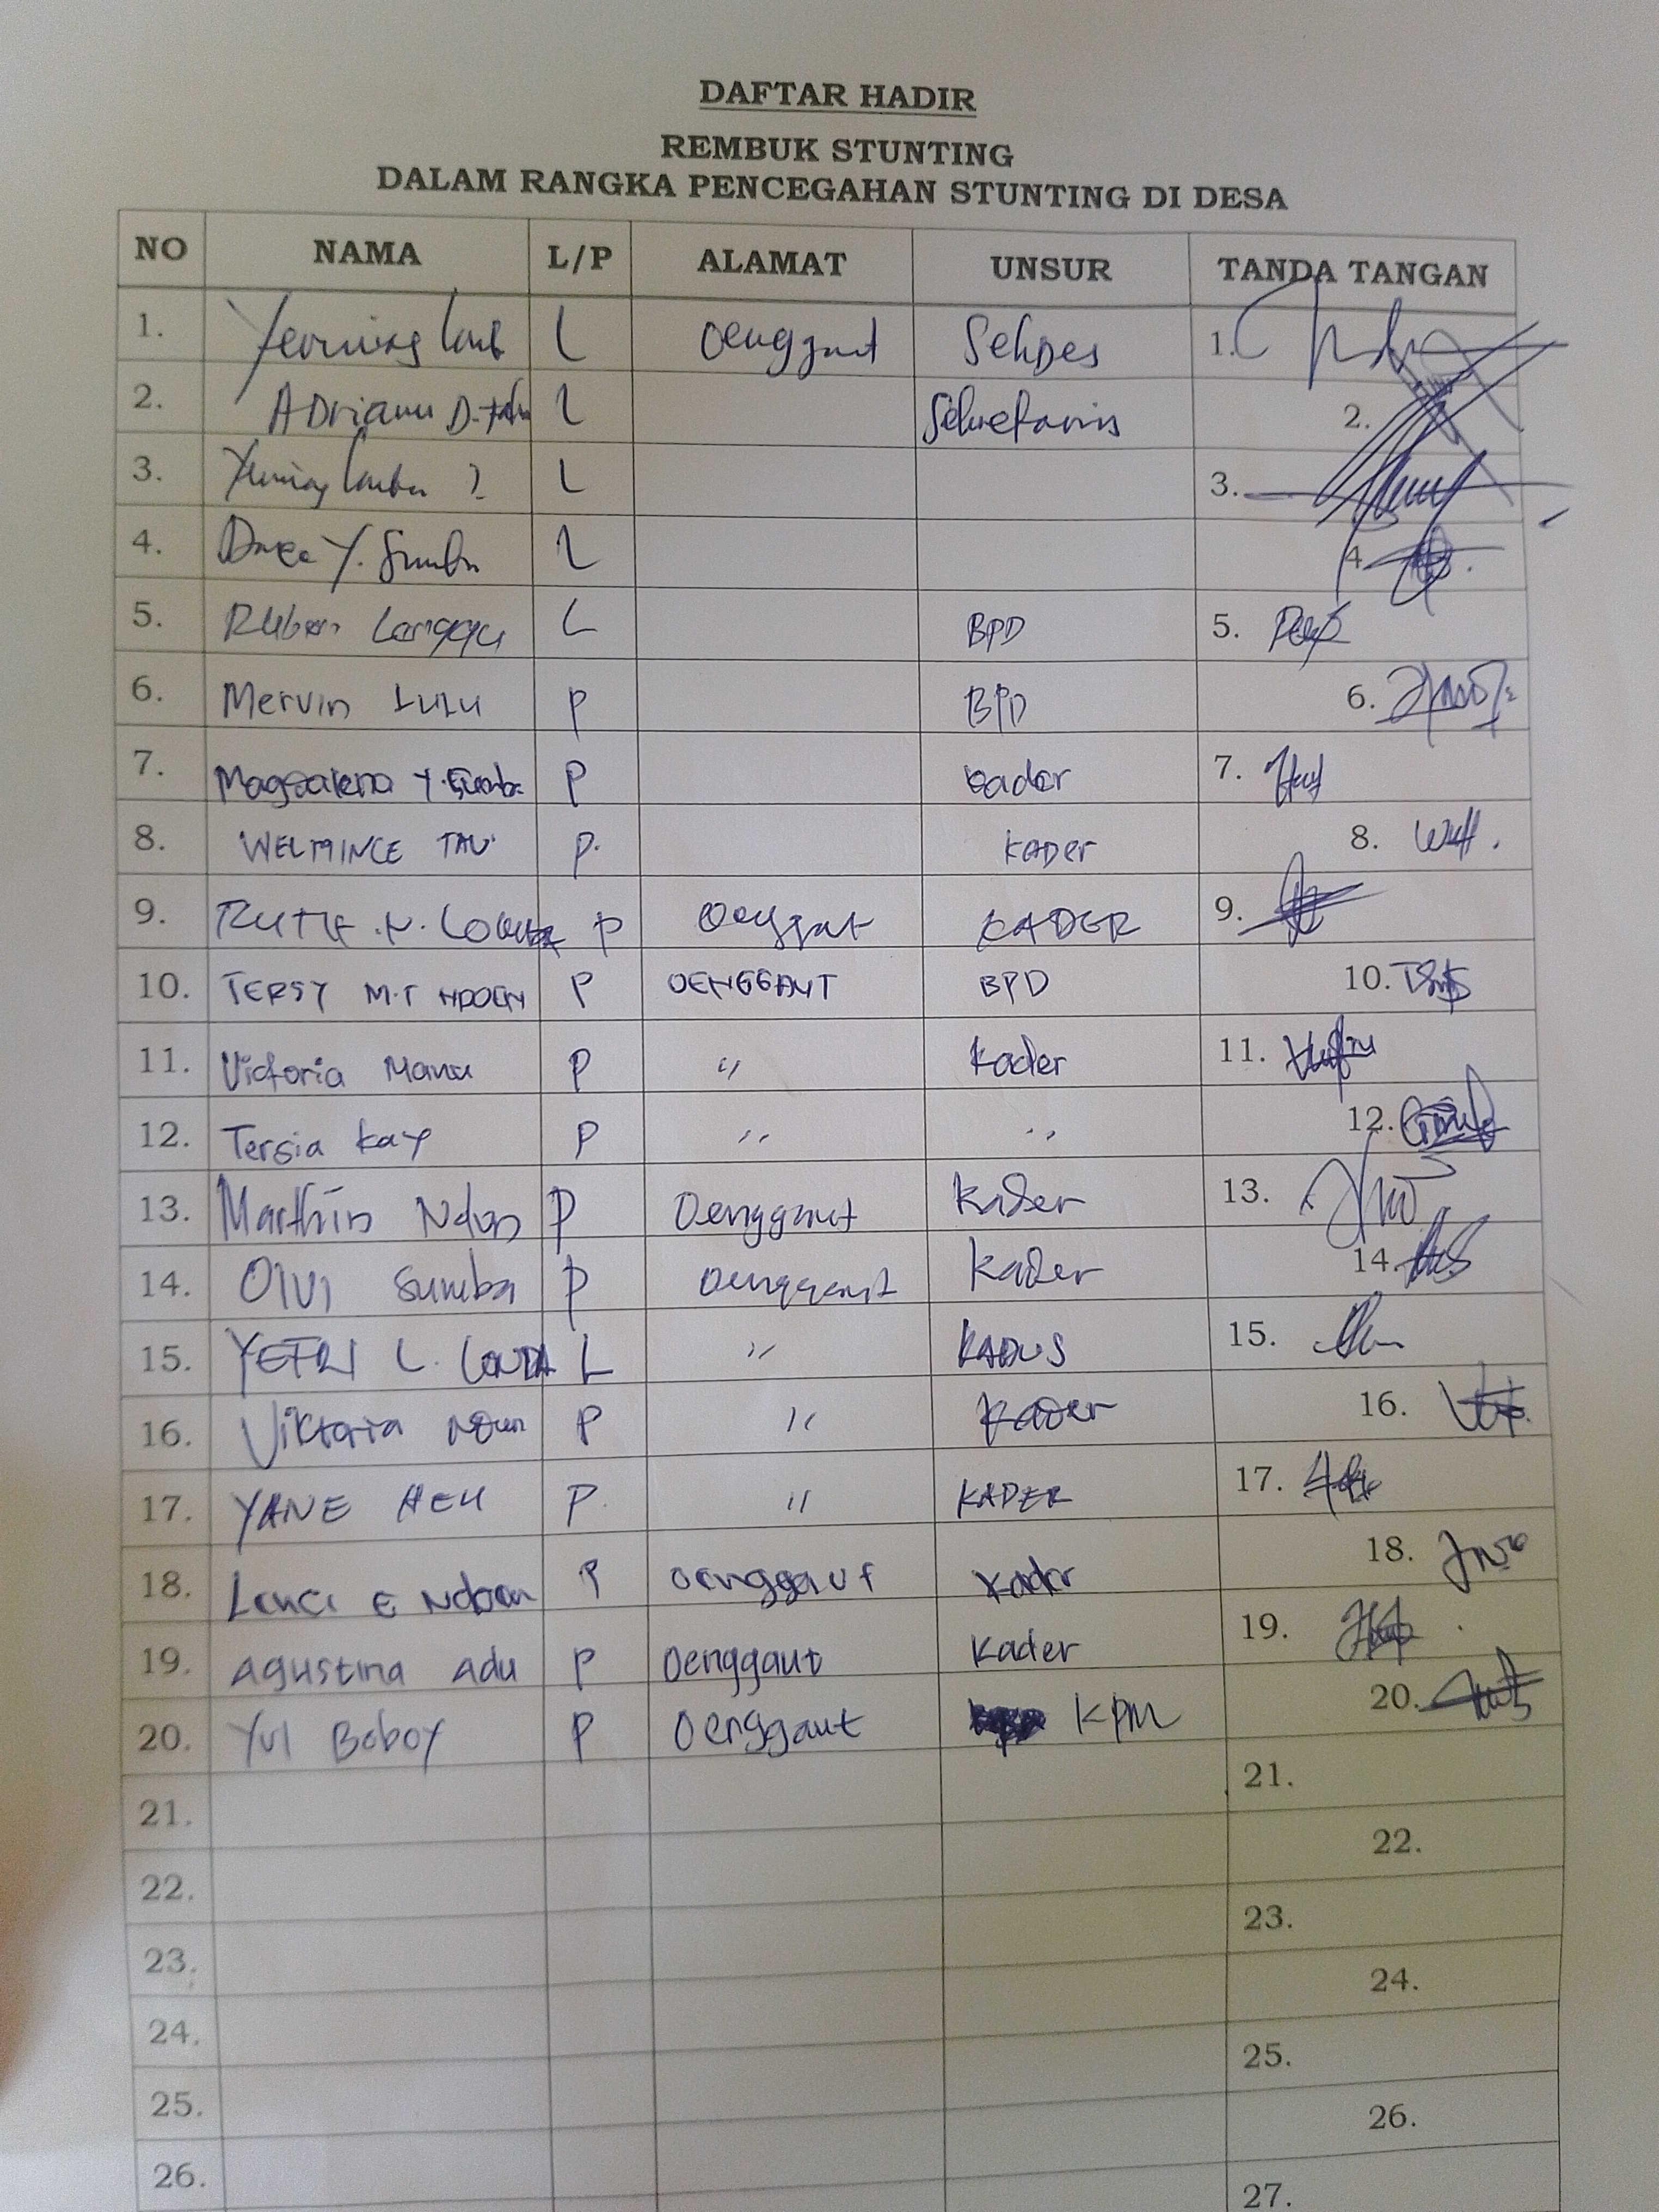 DAFTAR HADIR
REMBUK STUNTING
DALAM RANGKA PENCEGAHAN STUNTING DI DESA
NO NAMA L/P ALAMAT UNSUR TANDA TANGAN
1. L Oenggaut Sekdes 1.
2. D. L Sekretaris 2.
3. L 3.
4. Y. L 4.
5. Ruben L BPD 5.
6. Mervin LULU P BPD 6.
7. Magdalena Y. Sumba P kader 7.
8. WELMINCE TAU P. KADER 8.
9. RUTH .N. P KADER 9.
10. TERSY M.T NDOEN P OENGGAUT BPD 10.
11. Victoria Manu P " Kader 11.
12. Tersia Kay P " " 12.
13. P Oenggaut Kader 13.
14. Olvi Sumba P Oenggaut Kader 14.
15. YEFRI L. L " KADUS 15.
16. Viktoria P " Kader 16.
17. YANE HEU P. " KADER 17.
18. E Ndoen P Oenggaut Kader 18.
19. Agustina Adu P Oenggaut Kader 19.
20. Yul Boboy P Oenggaut KPM 20.
21. 21.
22. 22.
23. 23.
24. 24.
25. 25.
26. 26.
27.